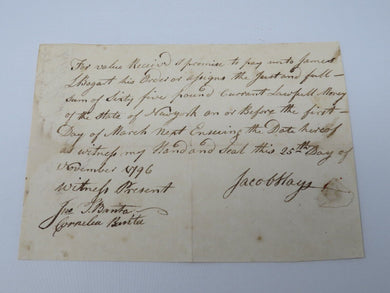 For value Received I promise to pay unto James
L Bogart his Order or assigns the Just and full
Sum of Sixty five pound Currant Lawfull Money
of the State of Newyork on or Before the first
Day of March next Ensuing the Date hereof
as witness my Hand and Seal this 25th Day of
November 1796
Witness Present
Jacob Hays
J. Banta
Cornelia Banta